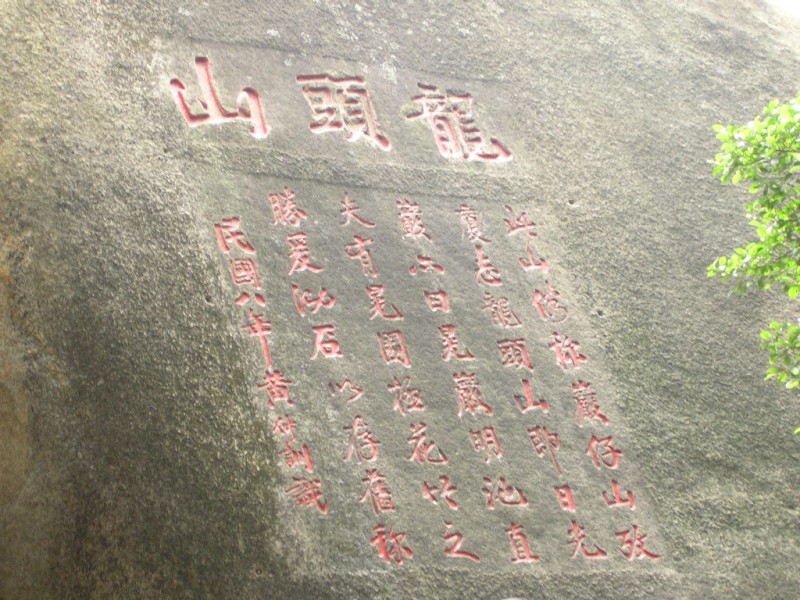 龍頭山
此山俗称巖仔山攷
廈志龍頭山即日光
巖亦曰晃巖明池直
夫有晃園極花竹之
勝爰泐石以存舊称
民國八年黃仲訓識